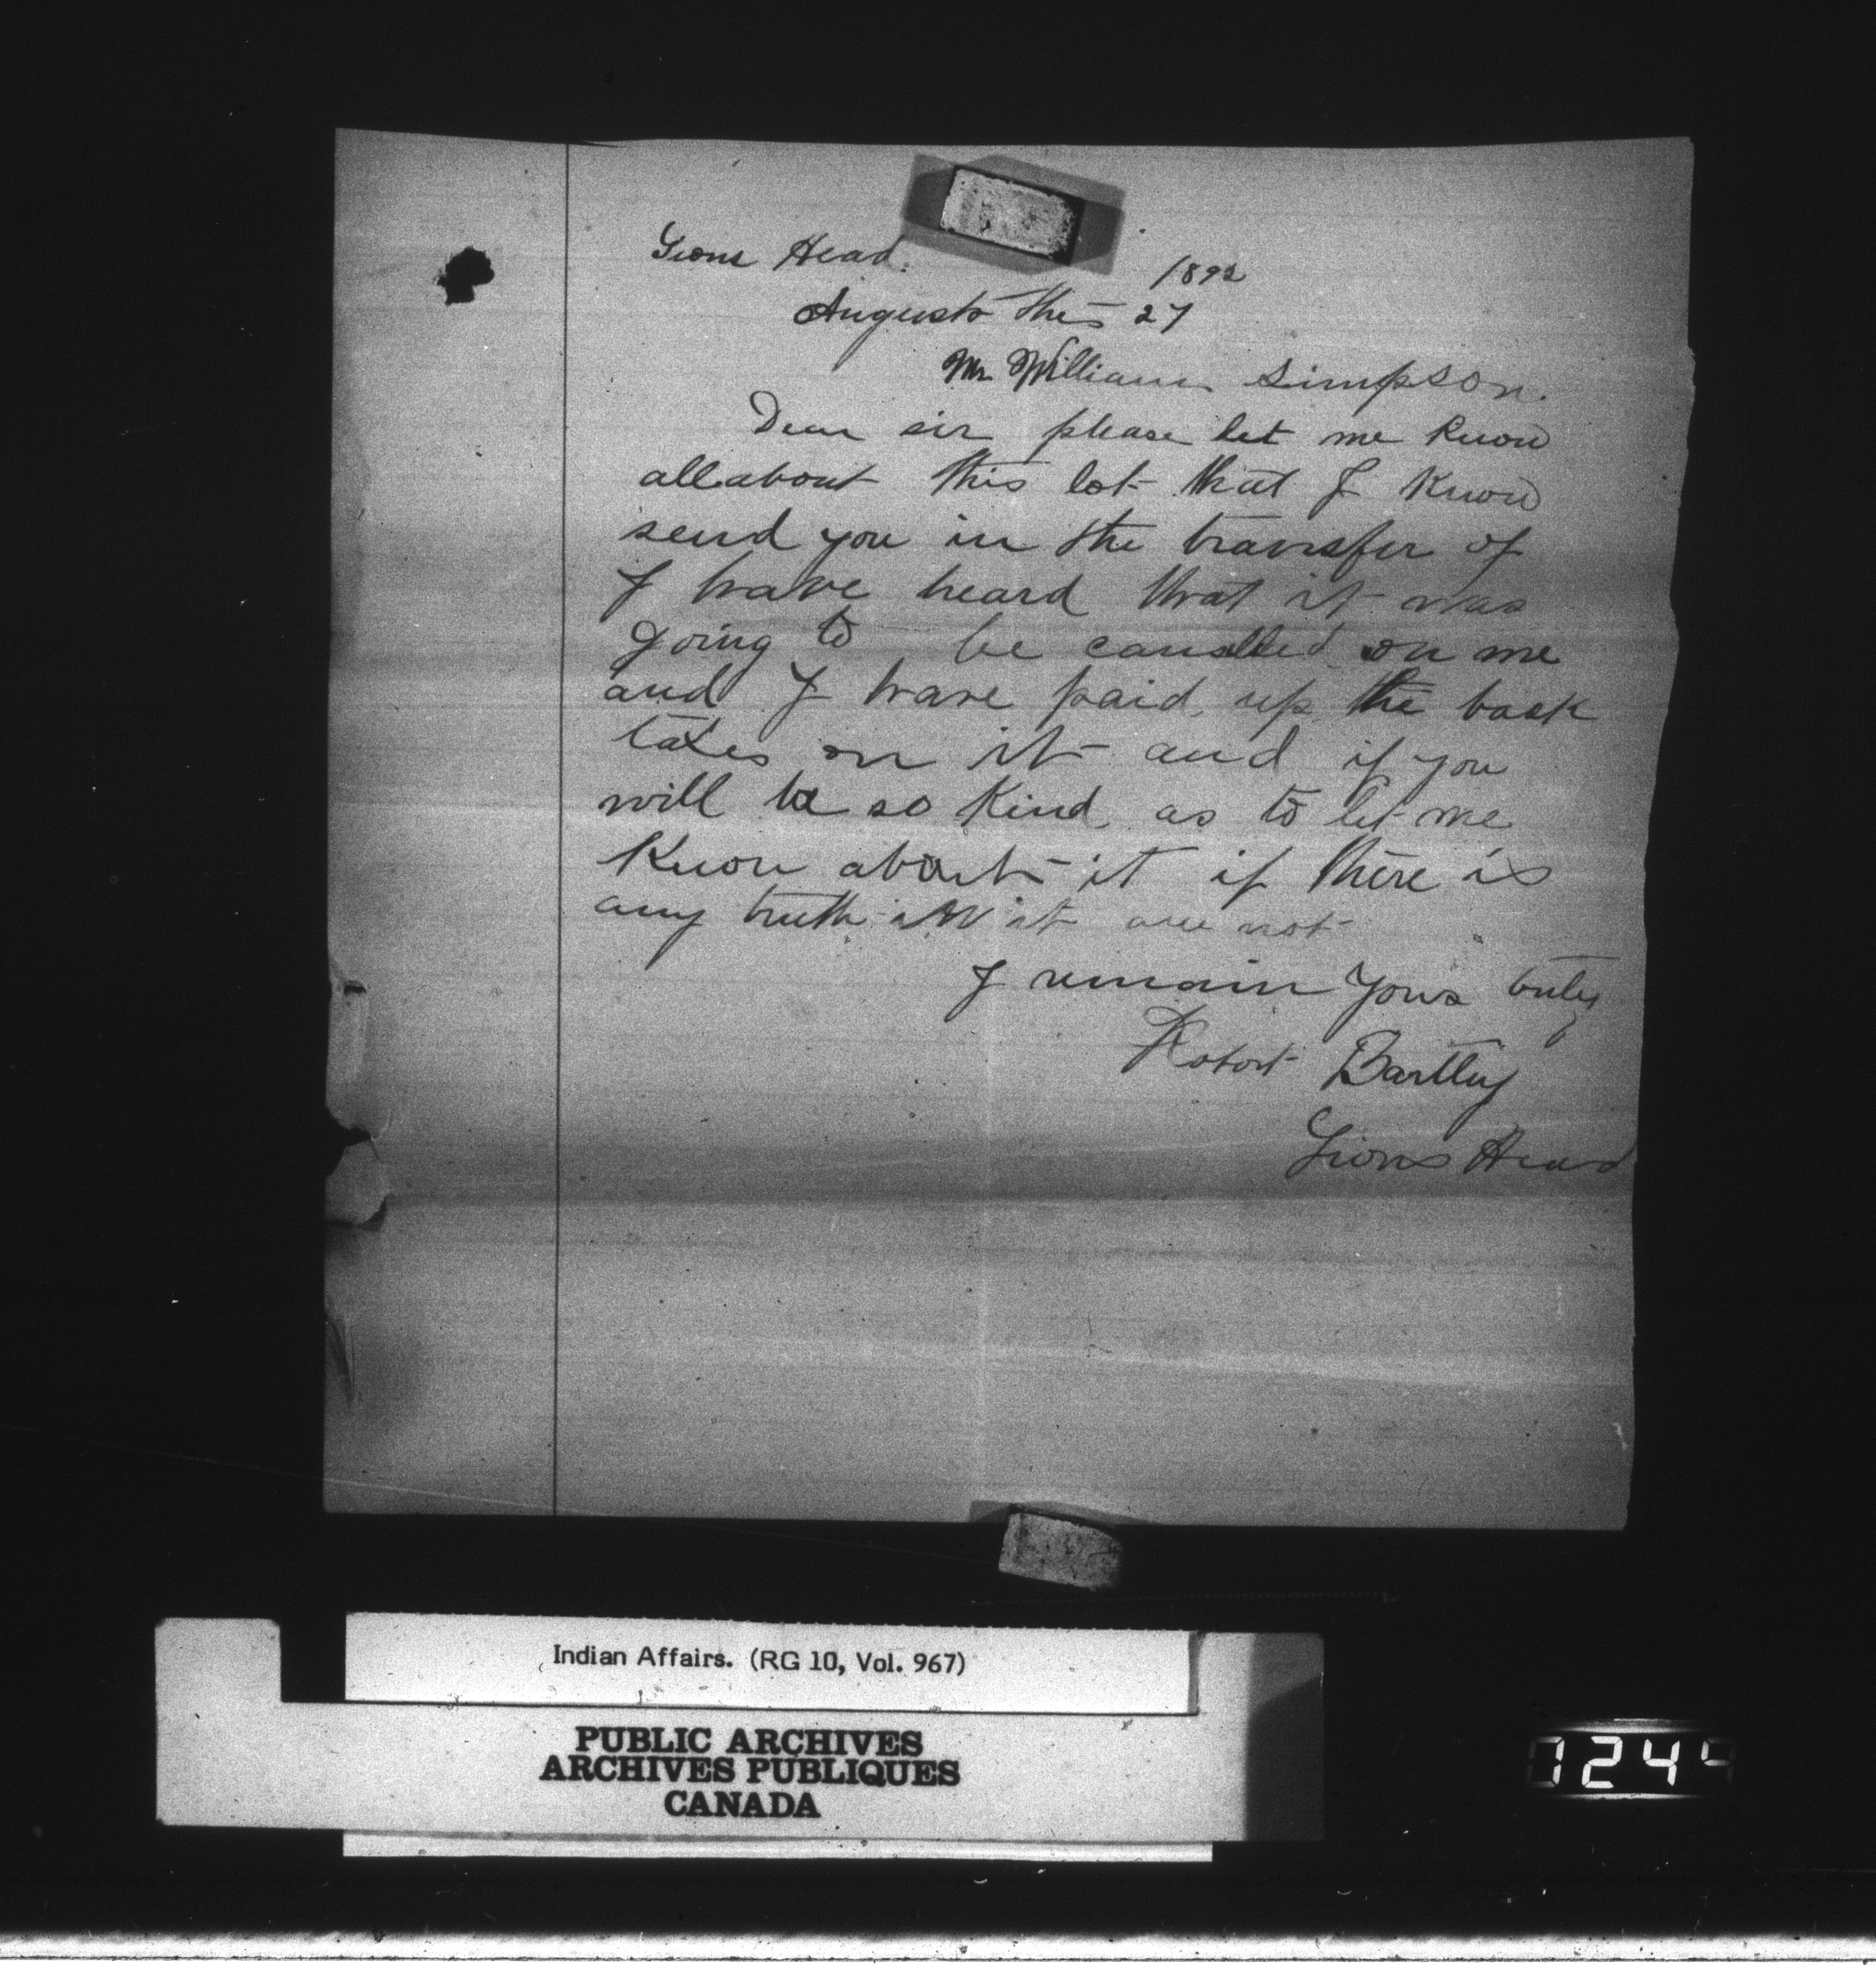 Lions Head.
1892
August the 27
Mr William Simpson.
Dear sir please let me know
all about this lot that I know
send you in the transfer of
I have heard that it was
going to be canslled on me
and I have paid up the back
taxes on it and if you
will be so Kind as to let me
Know about it if there is
any truth in it are not
I remain yours truly
Robert Bartley
Lions Head
Indian Affairs. (RG 10, Vol. 967)
PUBLIC ARCHIVES
ARCHIVES PUBLIQUES
CANADA
1244